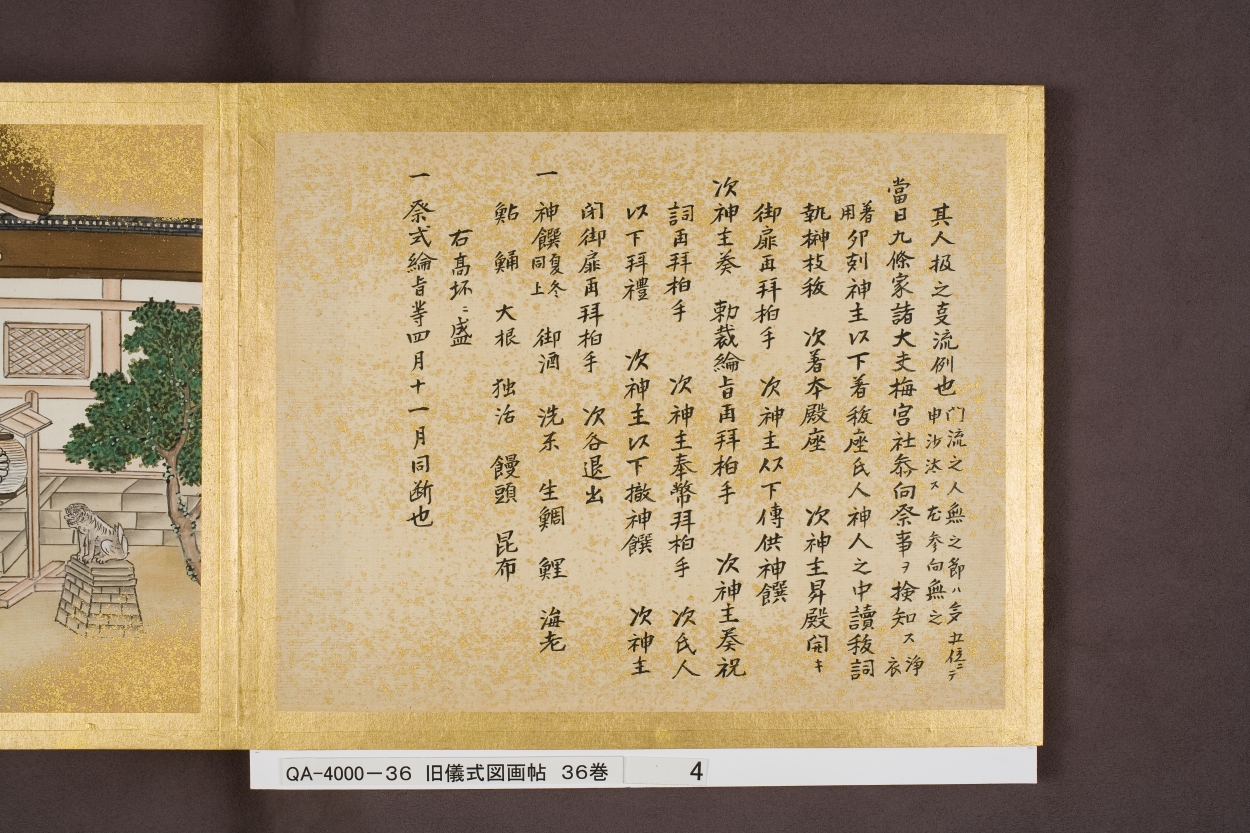 其人扱之支流例也 門流之人無之節ハ多五位ニテ
申沙汰ス尤参向無之
當日九條家諸大夫梅宮社参向祭事ヲ検知ス 浄衣
着用 卯刻神主以下着祓座氏人神人之中讀祓詞
執榊枝祓 次着本殿座 次神主昇殿開キ
御扉再拜拍手 次神主以下傳供神饌
次神主奏 勅裁綸旨再拜拍手 次神主奏祝
詞再拜拍手 次神主奉幣拜拍手 次氏人
以下拜禮 次神主以下撤神饌 次神主
閉御扉再拜拍手 次各退出
一 神饌 夏冬同上 御酒 洗米 生鯛 鯉 海老
鮎 鯆 大根 独活 饅頭 昆布
右高坏ニ盛
一 祭式綸旨等四月十一月同断也
QA-4000-36 旧儀式図画帖 36巻 4